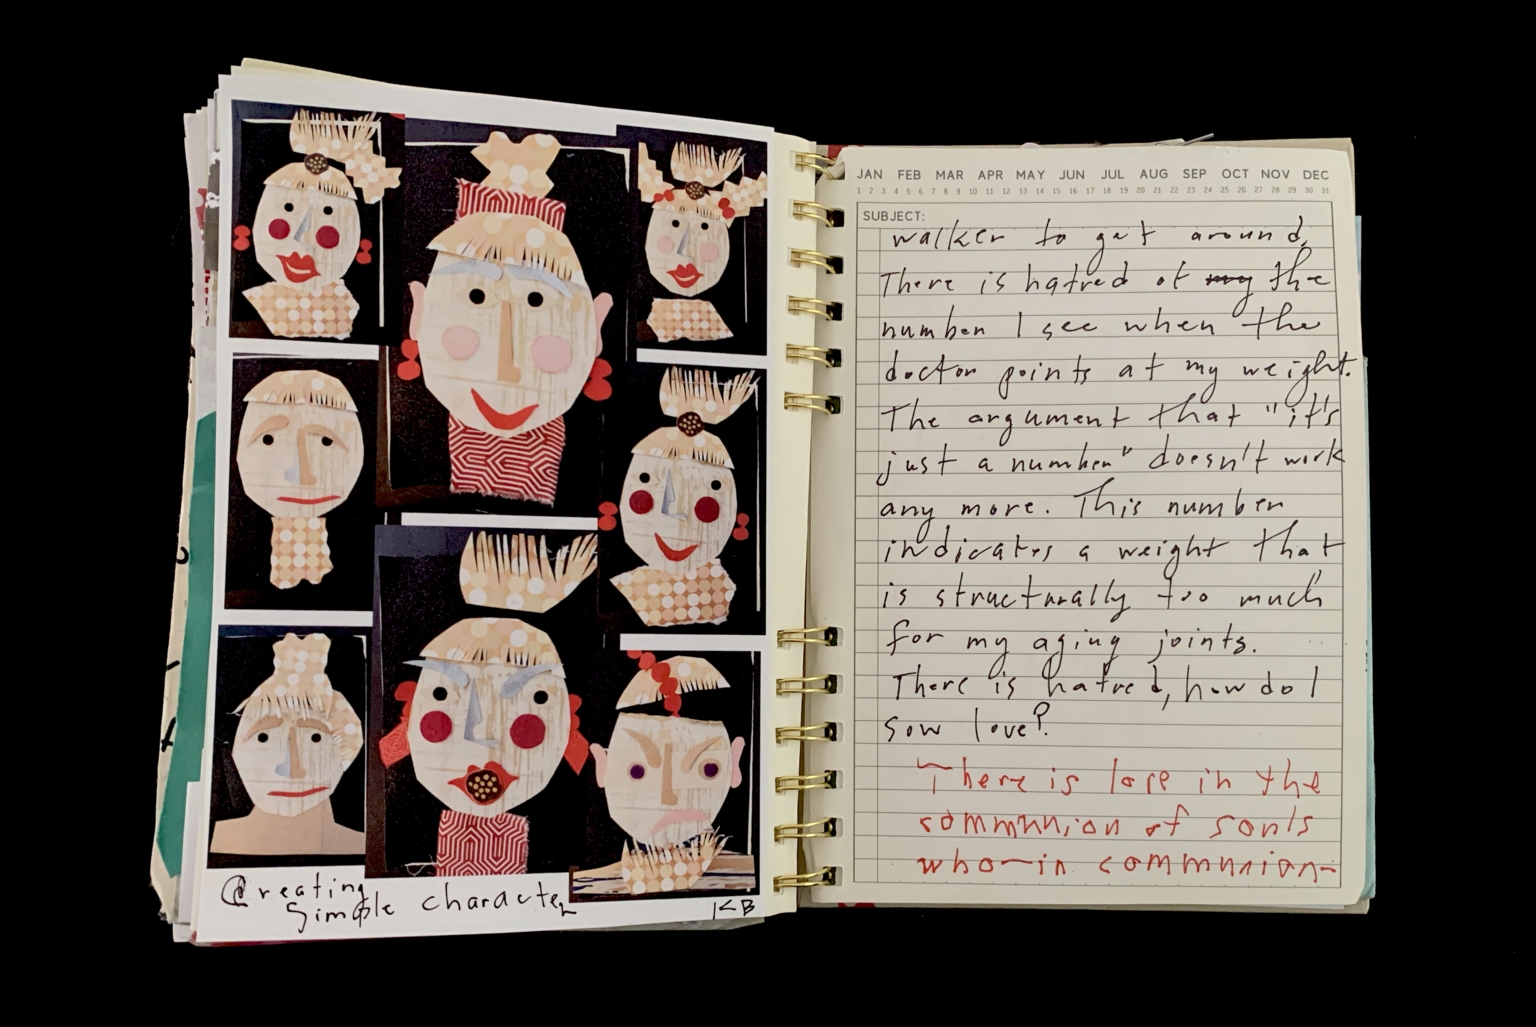 Creating
Simple character
KB
JAN FEB MAR APR MAY JUN JUL AUG SEP OCT NOV DEC
1 2 3 4 5 6 7 8 9 10 11 12 13 14 15 16 17 18 19 20 21 22 23 24 25 26 27 28 29 30 31
SUBJECT:
walker to get around,
There is hatred of my the
number I see when the
doctor points at my weight.
The argument that "it's
just a number" doesn't work
any more. This number
indicates a weight that
is structurally too much
for my aging joints.
There is hatred, how do I
sow love?
There is love in the
communion of souls
who-in communion-